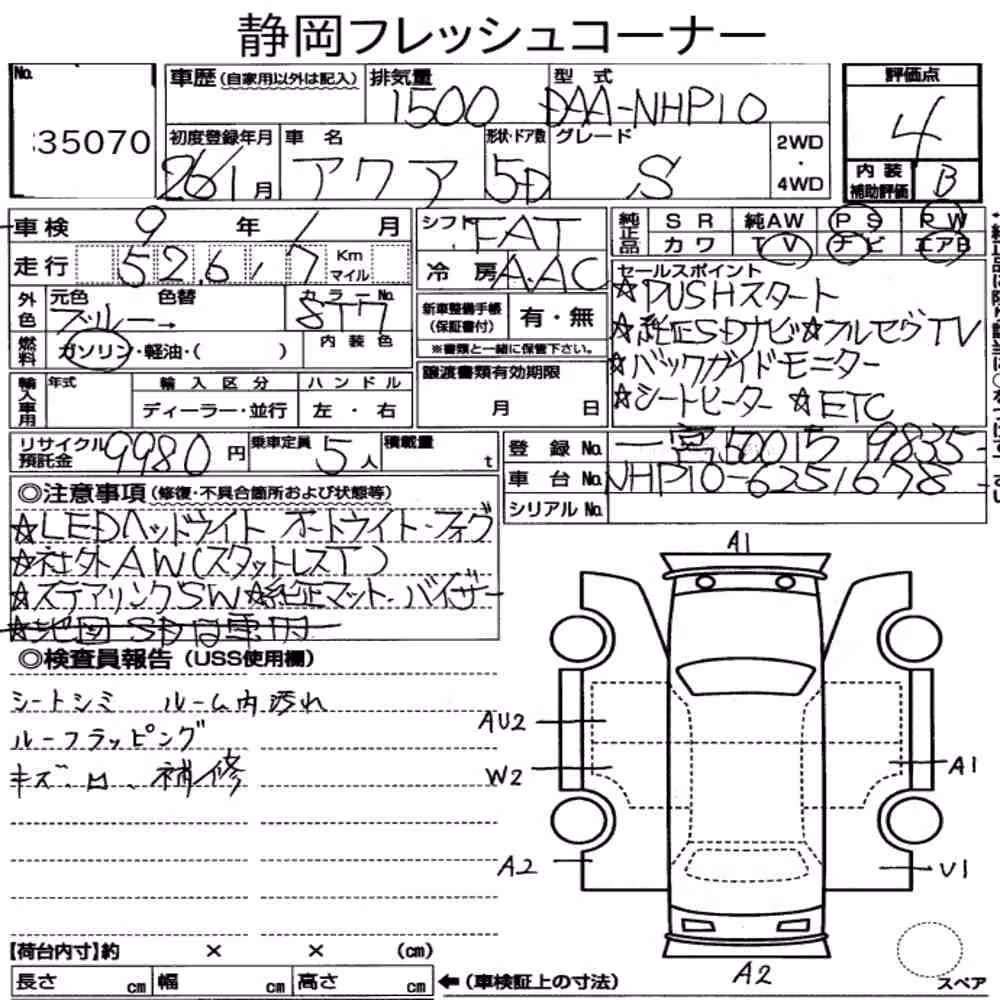 静岡フレッシュコーナー
No. 35070
車歴(自家用以外は記入) 排気量 1500 型式 DAA-NHP10 評価点 4
初度登録年月 26/1月 車名 アクア 形状・ドア数 5D グレード S 2WD・4WD 内装補助評価 B
車検 9年 1月 シフト FAT 純正品 SR 純AW PS PW
カワ TV ナビ エアB
走行 52,617 Km マイル 冷房 AAC
外色 元色 ブルー→ 色替 カラーNo. 8T7 内装色
新車整備手帳(保証書付) 有・無
※書類と一緒に保管下さい。
燃料 ガソリン・軽油・( )
輸入車用 年式 輸入区分 ディーラー・並行 ハンドル 左・右
譲渡書類有効期限 月 日
セールスポイント
☆PUSHスタート
☆純正SDナビ☆フルセグTV
☆バックガイドモニター
☆シートヒーター ☆ETC
リサイクル預託金 9980円 乗車定員 5人 積載量 t
登録No. 一宮500ち9835
車台No. NHP10-6251678
シリアルNo.
◎注意事項(修復・不具合箇所および状態等)
☆LEDヘッドライト オートライト・フォグ
☆社外AW(スタットレスT)
☆ステアリングSW☆純正マット・バイザー
◎検査員報告(USS使用欄)
シートシミ ルーム内汚れ
ルーフラッピング
キズ、ロ、補修
A1
AU2
W2
A1
A2
U1
A2
スペア
【荷台内寸】約 × × (cm)
長さ cm 幅 cm 高さ cm ←(車検証上の寸法)